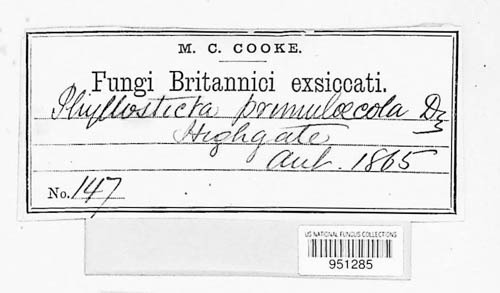 M. C. COOKE.
Fungi Britannici exsiccati.
Phyllosticta primulæcola Dz
Highgate
Aut. 1865
No. 147
US NATIONAL FUNGUS COLLECTIONS
951285